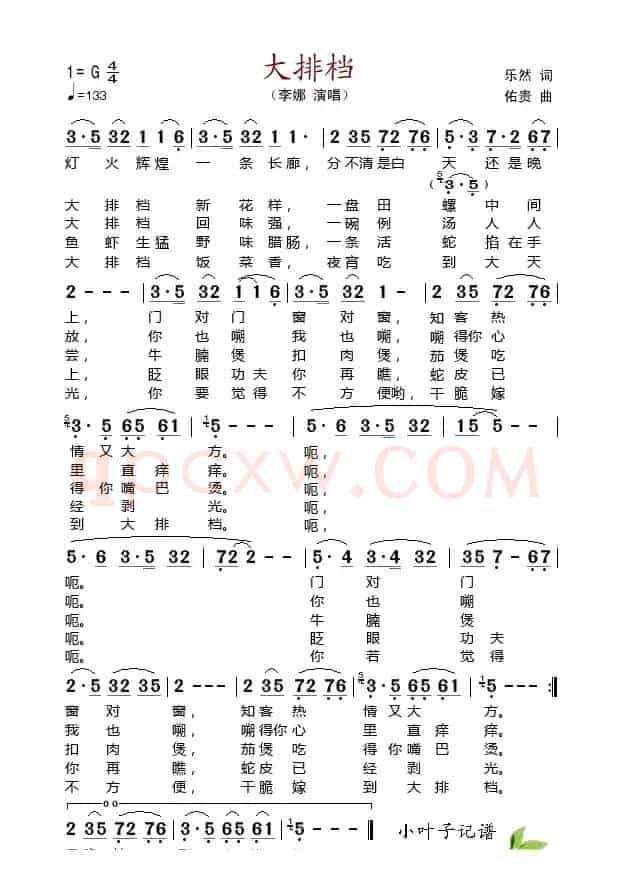 大排档
1= G 4/4
♩=133
（李娜 演唱）
乐然 词
佑贵 曲
3·5 32 1 1 6 | 3·5 32 1 - | 2 35 72 76 | 5·3 7·2 67 |
灯 火 辉 煌 一 条 长 廊, 分 不清 是白 天 还 是 晚
(5 3·5)
大 排 档 新 花 样, 一盘 田 螺 中 间
大 排 档 回 味 强, 一碗 例 汤 人 人
鱼 虾 生猛 野 味 腊肠, 一条 活 蛇 掐 在 手
大 排 档 饭 菜 香, 夜宵 吃 到 大 天
2 - - - | 3·5 32 1 1 6 | 3·5 32 1 - | 2 35 72 76 |
上, 门 对 门 窗 对 窗, 知 客 热
放, 你 也 嘲 我 也 嘲, 嘲 得你 心
尝, 牛 腩 煲 扣 肉 煲, 茄 煲 吃
上, 眨 眼 功夫 你 再 瞧, 蛇 皮 已
光, 你 要 觉得 不 方 便哟, 干 脆 嫁
5 3·5 65 61 | 1 5 - - - | 5·6 3·5 32 | 15 5 - - |
情 又 大 方。 呃,
里 直 痒 痒。 呃,
得 你 嘴 巴 烫。 呃,
经 剥 光。 呃,
到 大 排 档。 呃,
qpcxw.COM
5·6 3·5 32 | 72 2 - - | 5·4 3·4 32 | 35 7 - 67 |
呃。 门 对 门
呃。 你 也 嘲
呃。 牛 腩 煲
呃。 眨 眼 功夫
呃。 你 若 觉得
2·5 32 35 | 2 - - - | 2 35 72 76 | 5 3·5 65 61 | 1 5 - - :‖
窗 对 窗, 知 客 热 情 又 大 方。
我 也 嘲, 嘲 得你 心 里 直 痒 痒。
扣 肉 煲, 茄 煲 吃 得 你 嘴 巴 烫。
你 再 瞧, 蛇 皮 已 经 剥 光。
不 方 便, 干 脆 嫁 到 大 排 档。
2 35 72 76 | 5 3·5 65 61 | 1 5 - - - ‖
小叶子记谱